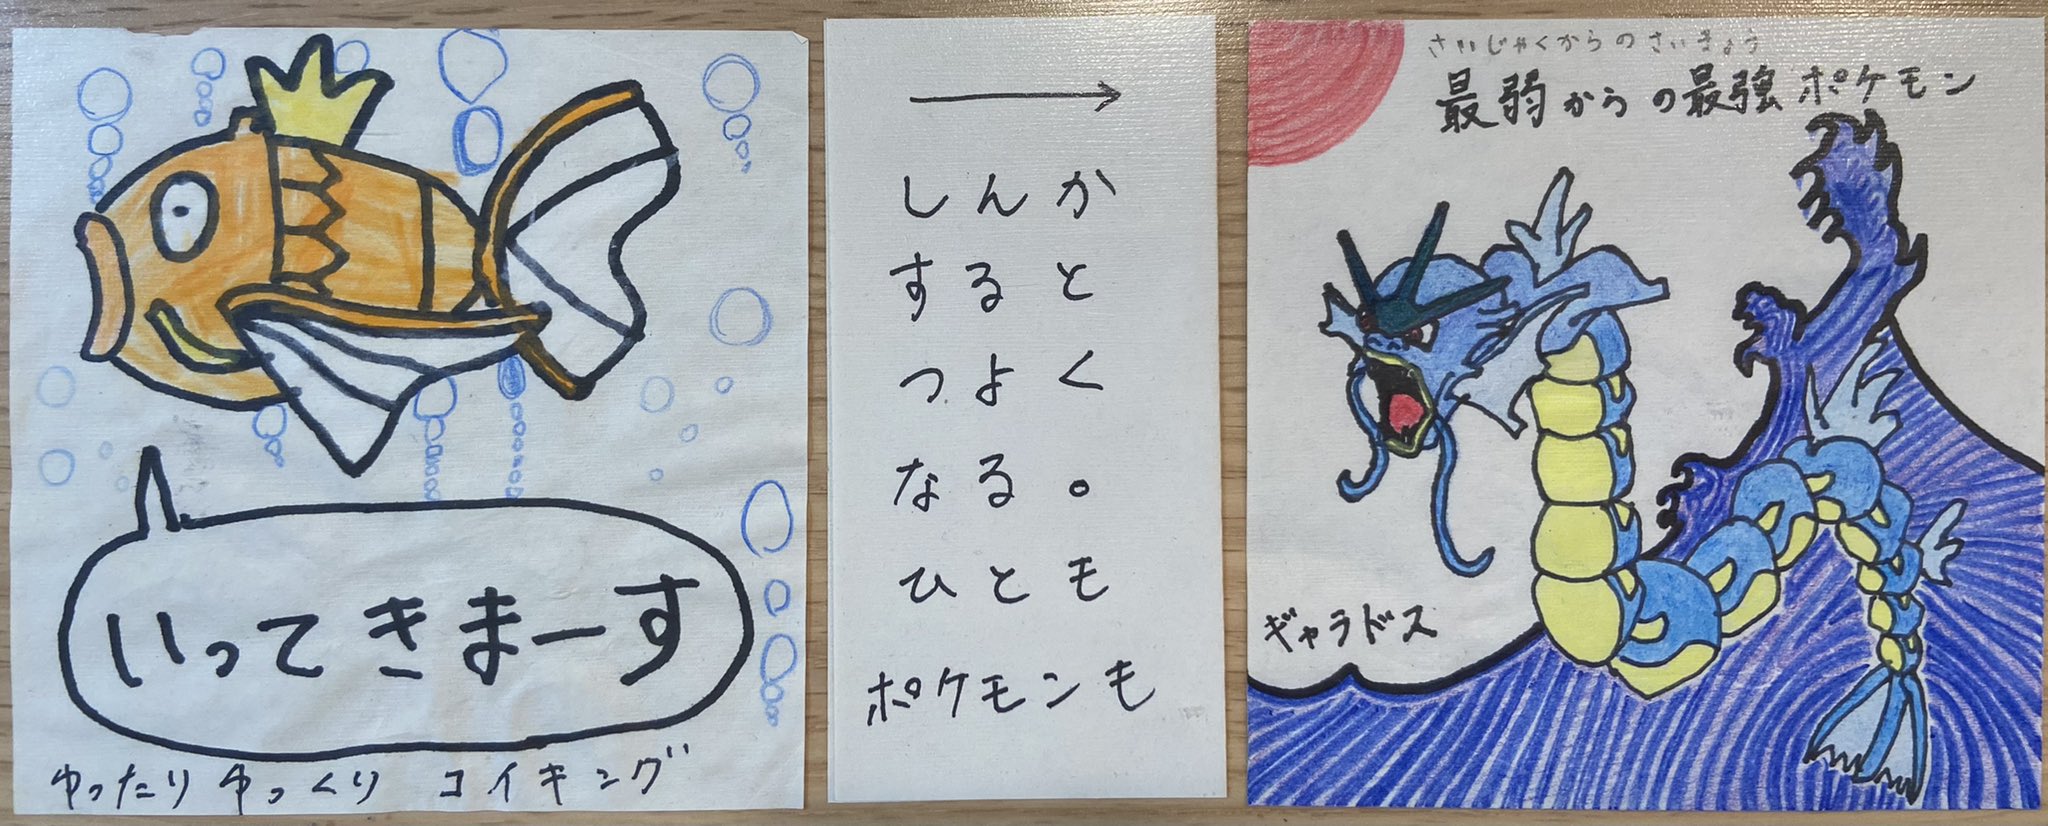 いってきまーす
ゆったりゆっくり コイキング
→
しんか
すると
つよく
なる。
ひとも
ポケモンも
さいじゃくからのさいきょう
最弱からの最強ポケモン
ギャラドス